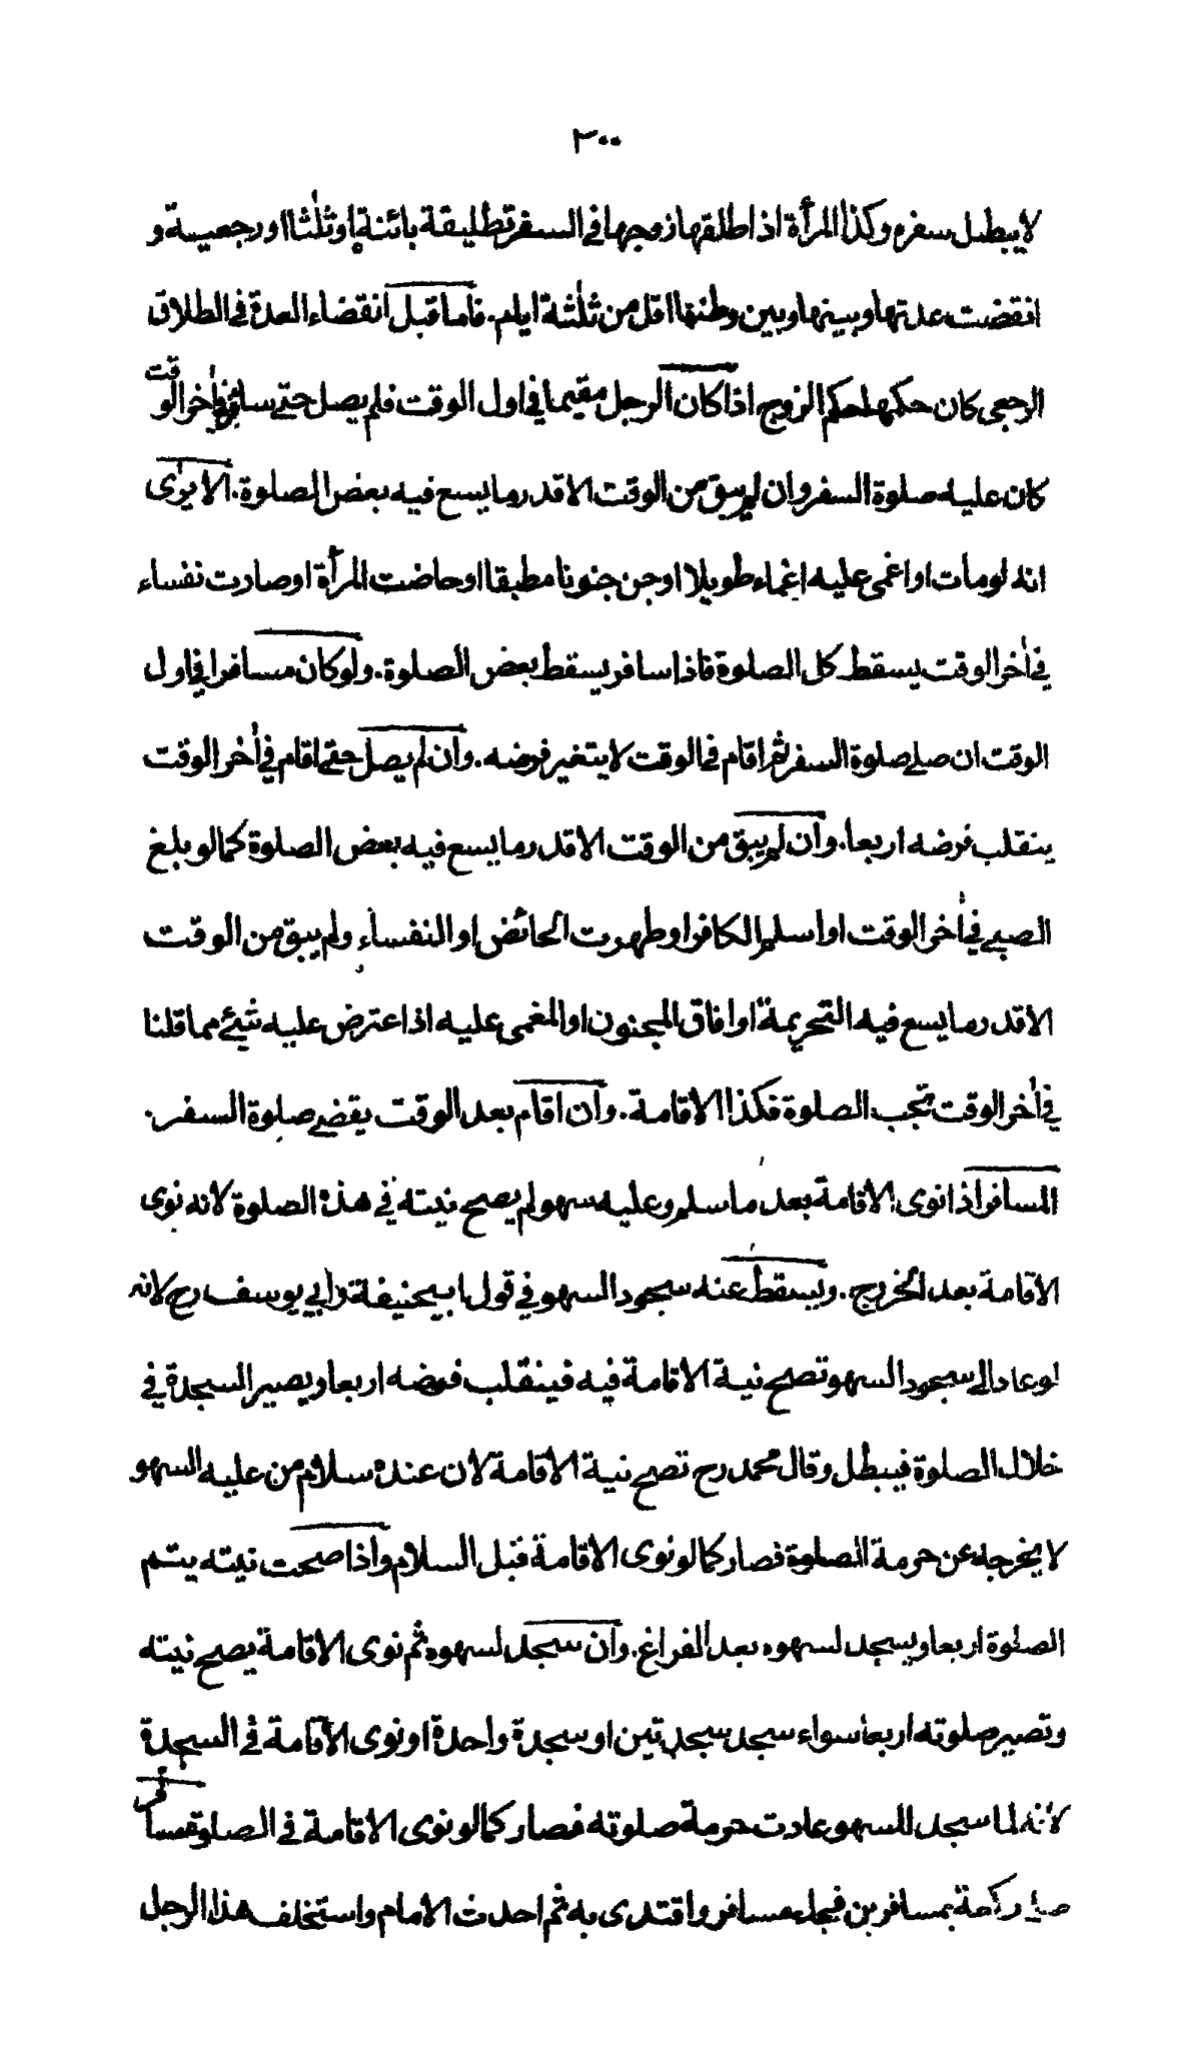 ٣٠٠
لا يبطل سفره وكذا المرأة اذا طلقها زوجها في السفر تطليقة بائنة او ثلٰثا او رجعية و
انقضت عدتها وبينها وبين وطنها اقل من ثلٰثة ايام. فاما قبل انقضاء العدة في الطلاق
الرجعي كان حكمها حكم الزوج اذا كان الرجل مقيما في اول الوقت فلم يصل حتى سافر في اٰخر الوقت
كان عليه صلوة السفر وان لم يبق من الوقت الا قدر ما يسع فيه بعض الصلوة. الا يرى
انه لو مات او اغمى عليه اغماء طويلا او جن جنونا مطبقا او حاضت المرأة او صارت نفساء
في اٰخر الوقت يسقط كل الصلوة فاذا سافر يسقط بعض الصلوة. ولو كان مسافرا في اول
الوقت ان صلى صلوة السفر ثم اقام في الوقت لا يتغير فرضه. وان لم يصل حتى اقام في اٰخر الوقت
ينقلب فرضه اربعا. وان لم يبق من الوقت الا قدر ما يسع فيه بعض الصلوة كما لو بلغ
الصبي في اٰخر الوقت او اسلم الكافر او طهرت الحائض او النفساء ولم يبق من الوقت
الا قدر ما يسع فيه التحريمة او افاق المجنون او المغمى عليه اذا اعترض عليه شئ مما قلنا
في اٰخر الوقت تجب الصلوة فكذا الاقامة. وان اقام بعد الوقت يقضي صلوة السفر.
المسافر اذا نوى الاقامة بعد ما سلم وعليه سهو لم يصح نيته في هذه الصلوة لانه نوى
الاقامة بعد الخروج. ويسقط عنه سجود السهو في قول ابيحنيفة وابي يوسف رح لانه
لو عاد الى سجود السهو تصح نية الاقامة فيه فينقلب فرضه اربعا ويصير السجدة في
خلال الصلوة فيبطل وقال محمد رح تصح نية الاقامة لان عنده سلام من عليه السهو
لا يخرجه عن حرمة الصلوة فصار كما لو نوى الاقامة قبل السلام واذا صحت نيته يتم
الصلوة اربعا ويسجد لسهوه بعد الفراغ. وان سجد لسهوه ثم نوى الاقامة يصح نيته
وتصير صلوته اربعا سواء سجد سجدتين او سجدة واحدة او نوى الاقامة في السجدة
لانه لما سجد للسهو عادت حرمة صلوته فصار كما لو نوى الاقامة في الصلوة مسافر
صلى ركعة بمسافرين فجاء مسافر واقتدى به ثم احدث الامام واستخلف هذا الرجل